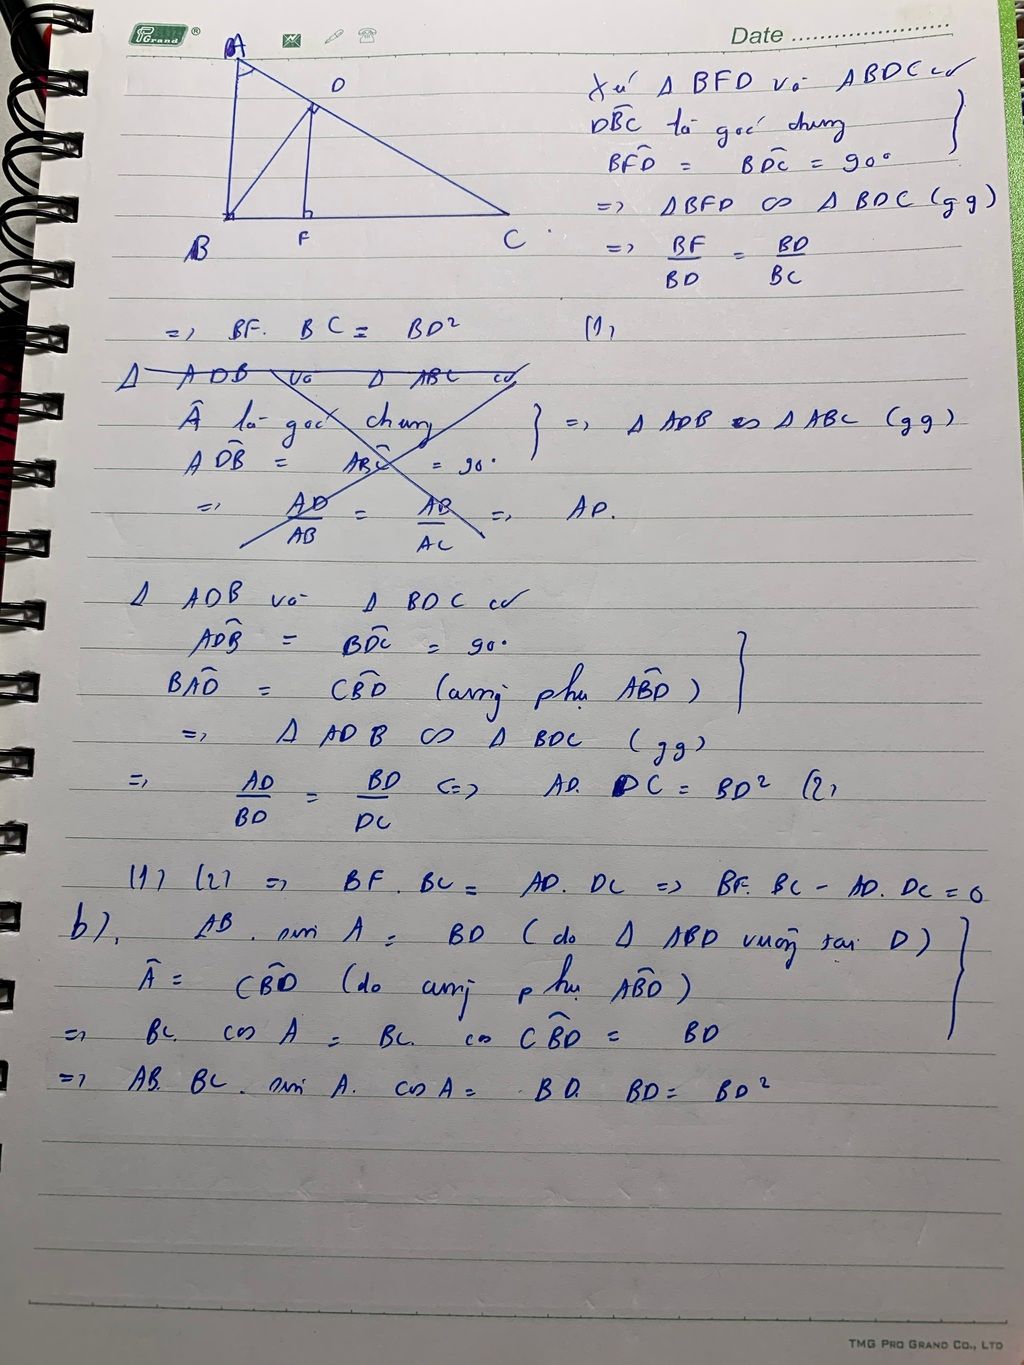 PGrand ®
Date
A
D
B
F
C
Xét Δ BFD và ΔBDC có
DB̂C là góc chung
BF̂D = BD̂C = 90°
=> ΔBFD ∽ Δ BDC (gg)
=> BF/BD = BD/BC
=> BF. BC = BD² (1)
Δ ADB và Δ ABC có
Â là góc chung => Δ ADB ∽ Δ ABC (gg)
AD̂B = AB̂C = 90°
=> AD/AB = AB/AC => AD.
Δ ADB và Δ BDC có
AD̂B = BD̂C = 90°
BÂD = CB̂D (cùng phụ AB̂D)
=> Δ ADB ∽ Δ BDC (gg)
=> AD/BD = BD/DC <=> AD. DC = BD² (2)
(1) (2) => BF. BC = AD. DC => BF. BC - AD. DC = 0
b). AB. sin A = BD (do Δ ABD vuông tại D)
Â = CB̂D (do cùng phụ AB̂D)
=> BC. cos A = BC. cos CB̂D = BD
=> AB. BC. sin A. cos A = BD. BD = BD²
TMG PRO GRAND CO., LTD